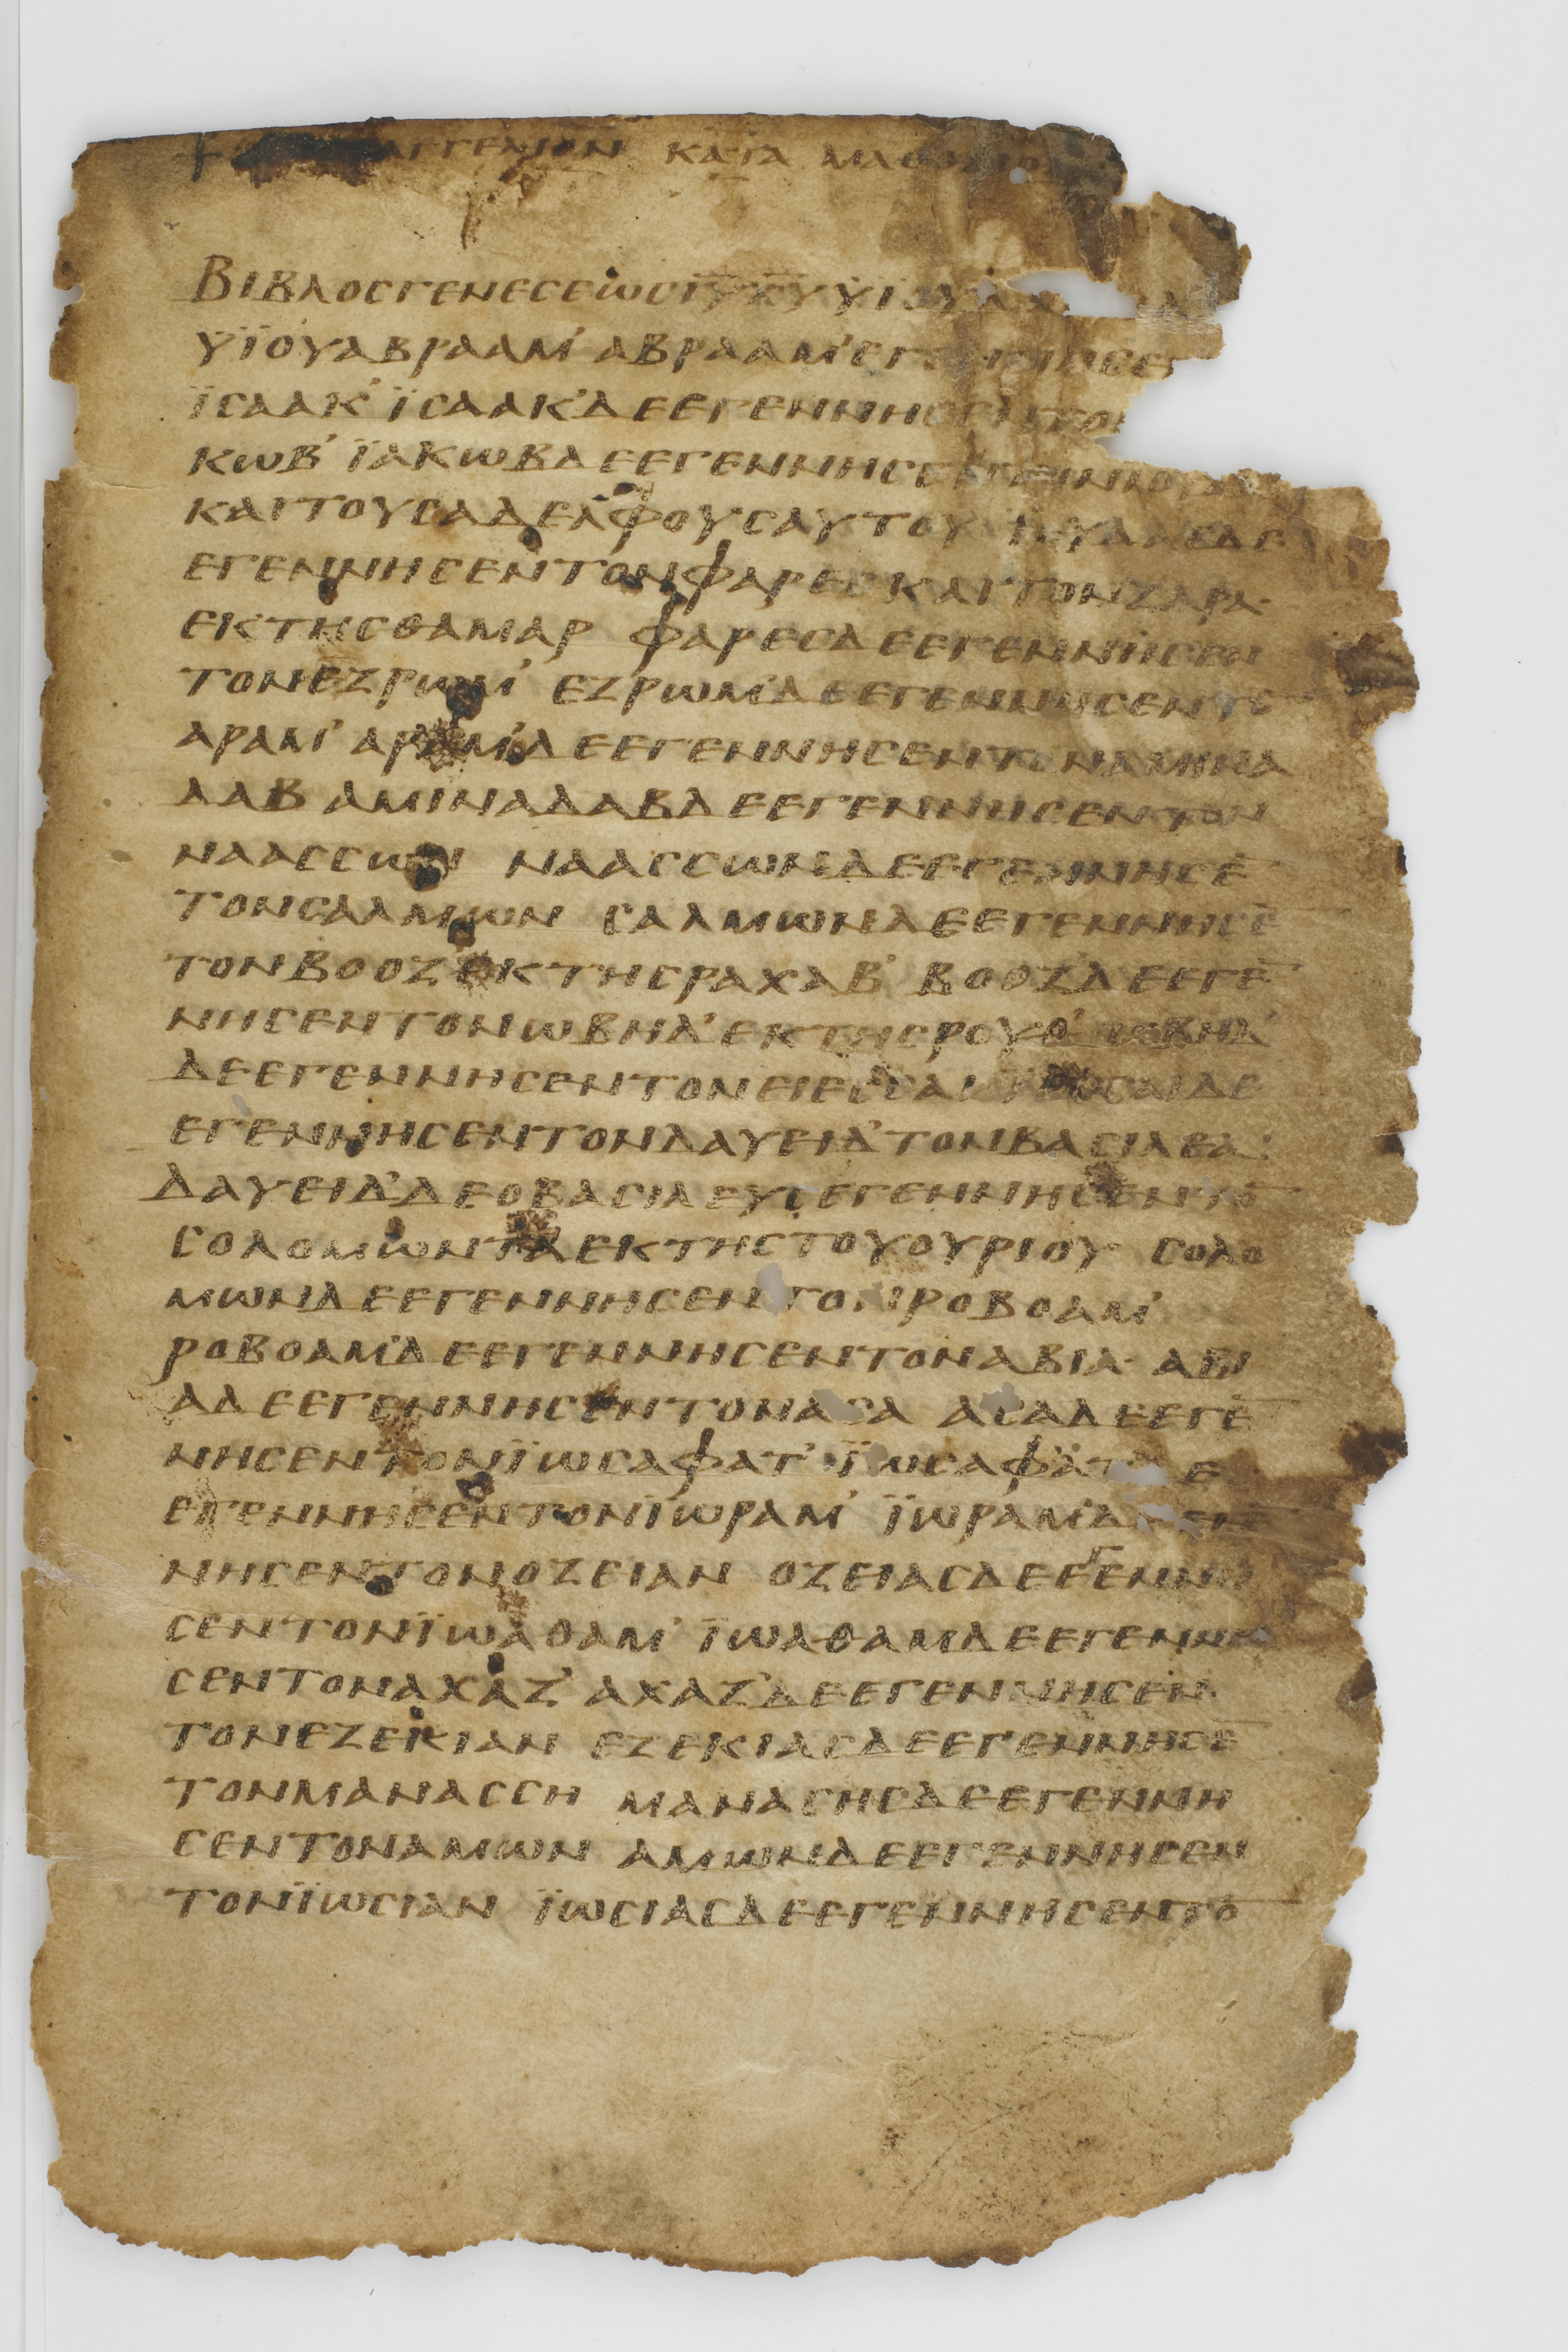 ΑΓΓΕΛΙΟΝ ΚΑΤΑ ΜΑΘ
ΒΙΒΛΟΣΓΕΝΕΣΕΩΣΙΥΧΥΥΙΟΥΔ
ΥΪΟΥΑΒΡΑΑΜ’ ΑΒΡΑΑΜ’ΕΓΕΝΝΗΣΕ
ΪΣΑΑΚ’ ΪΣΑΑΚ’ΔΕΕΓΕΝΝΗΣΕ
ΚΩΒ’ ΪΑΚΩΒΔΕΕΓΕΝΝΗΣΕ
ΚΑΙΤΟΥΣΑΔΕΛΦΟΥΣΑΥΤΟΥ ΙΟΥΔΑΣΔΕ
ΕΓΕΝΝΗΣΕΝΤΟΝΦΑΡΕΣΚΑΙΤΟΝΖΑΡΑ·
ΕΚΤΗΣΘΑΜΑΡ ΦΑΡΕΣΔΕΕΓΕΝΝΗΣΕΝ
ΤΟΝΕΖΡΩΜ’ ΕΖΡΩΜ’ΔΕΕΓΕΝΝΗΣΕΝΤΟ̅
ΑΡΑΜ’ ΑΡΑΜ’ΔΕΕΓΕΝΝΗΣΕΝΤΟΝΑΜΙΝΑ
ΔΑΒ ΑΜΙΝΑΔΑΒΔΕΕΓΕΝΝΗΣΕΝΤΟΝ
ΝΑΑΣΣΩΝ ΝΑΑΣΣΩΝΔΕΕΓΕΝΝΗΣΕ̅
ΤΟΝΣΑΛΜΩΝ ΣΑΛΜΩΝΔΕΕΓΕΝΝΗΣΕ̅
ΤΟΝΒΟΟΖ’ΕΚΤΗΣΡΑΧΑΒ’ ΒΟΟΖ’ΔΕΕΓΕ̅
ΝΗΣΕΝΤΟΝΩΒΗΔ’ΕΚΤΗΣΡΟΥΘ’ ΩΒΗΔ’
ΔΕΕΓΕΝΝΗΣΕΝΤΟΝΙΕΣΣΑΙ ΙΕΣΣΑΙΔΕ
ΕΓΕΝΝΗΣΕΝΤΟΝΔΑΥΕΙΔ’ΤΟΝΒΑΣΙΛΕΑ·
ΔΑΥΕΙΔ’ΔΕΟΒΑΣΙΛΕΥΣΕΓΕΝΝΗΣΕΝΤΟ̅
ΣΟΛΟΜΩΝΤΑΕΚΤΗΣΤΟΥΟΥΡΙΟΥ ΣΟΛΟ
ΜΩΝΔΕΕΓΕΝΝΗΣΕΝΤΟΝΡΟΒΟΑΜ’
ΡΟΒΟΑΜ’ΔΕΕΓΕΝΝΗΣΕΝΤΟΝΑΒΙΑ· ΑΒΙ
ΑΔΕΕΓΕΝΝΗΣΕΝΤΟΝΑΣΑ ΑΣΑΔΕΕΓΕ̅
ΝΗΣΕΝΤΟΝΪΩΣΑΦΑΤ’ ΪΩΣΑΦΑΤΔΕ
ΕΓΕΝΝΗΣΕΝΤΟΝΪΩΡΑΜ’ ΪΩΡΑΜ’ΔΕ
ΝΗΣΕΝΤΟΝΟΖΕΙΑΝ ΟΖΕΙΑΣΔΕΕΓΕΝΝΗ
ΣΕΝΤΟΝΪΩΑΘΑΜ’ ΪΩΑΘΑΜΔΕΕΓΕΝΝΗ
ΣΕΝΤΟΝΑΧΑΖ’ ΑΧΑΖ’ΔΕΕΓΕΝΝΗΣΕΝ
ΤΟΝΕΖΕΚΙΑΝ ΕΖΕΚΙΑΣΔΕΕΓΕΝΝΗΣΕ̅
ΤΟΝΜΑΝΑΣΣΗ ΜΑΝΑΣΗΣΔΕΕΓΕΝΝΗ
ΣΕΝΤΟΝΑΜΩΝ ΑΜΩΝΔΕΕΓΕΝΝΗΣΕΝ
ΤΟΝΪΩΣΙΑΝ ΪΩΣΙΑΣΔΕΕΓΕΝΝΗΣΕΝΤΟ̅